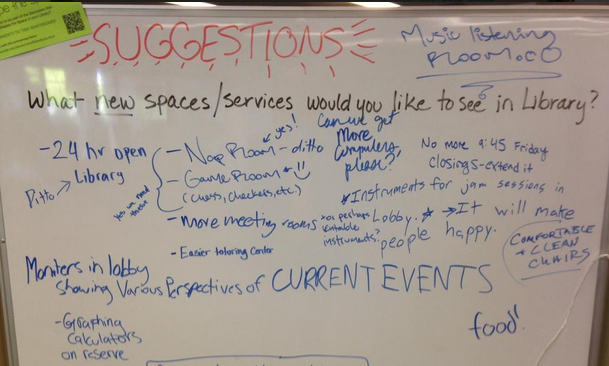 SUGGESTIONS
Music listening
Room.
What new spaces/services would you like to see in Library?
-24 hr open
Library
Ditto
yes we need
these
- Nap Room - ditto
yes!
- Game Room
(chess, checkers, etc)
- more meeting rooms
- Easier tutoring Center
Can we get
More
Computers,
please?
No more 9:45 Friday
closings-extend it
*Instruments for jam sessions in
Lobby. * → It will make
people happy.
or perhaps
rentable
instruments?
COMFORTABLE
+ CLEAN
CHAIRS
Moniters in lobby
showing Various Perspectives of CURRENT EVENTS
-Graphing
Calculators
on reserve
food!